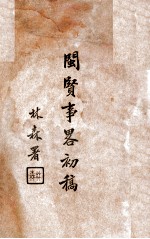 閩賢事畧初稿
林森署